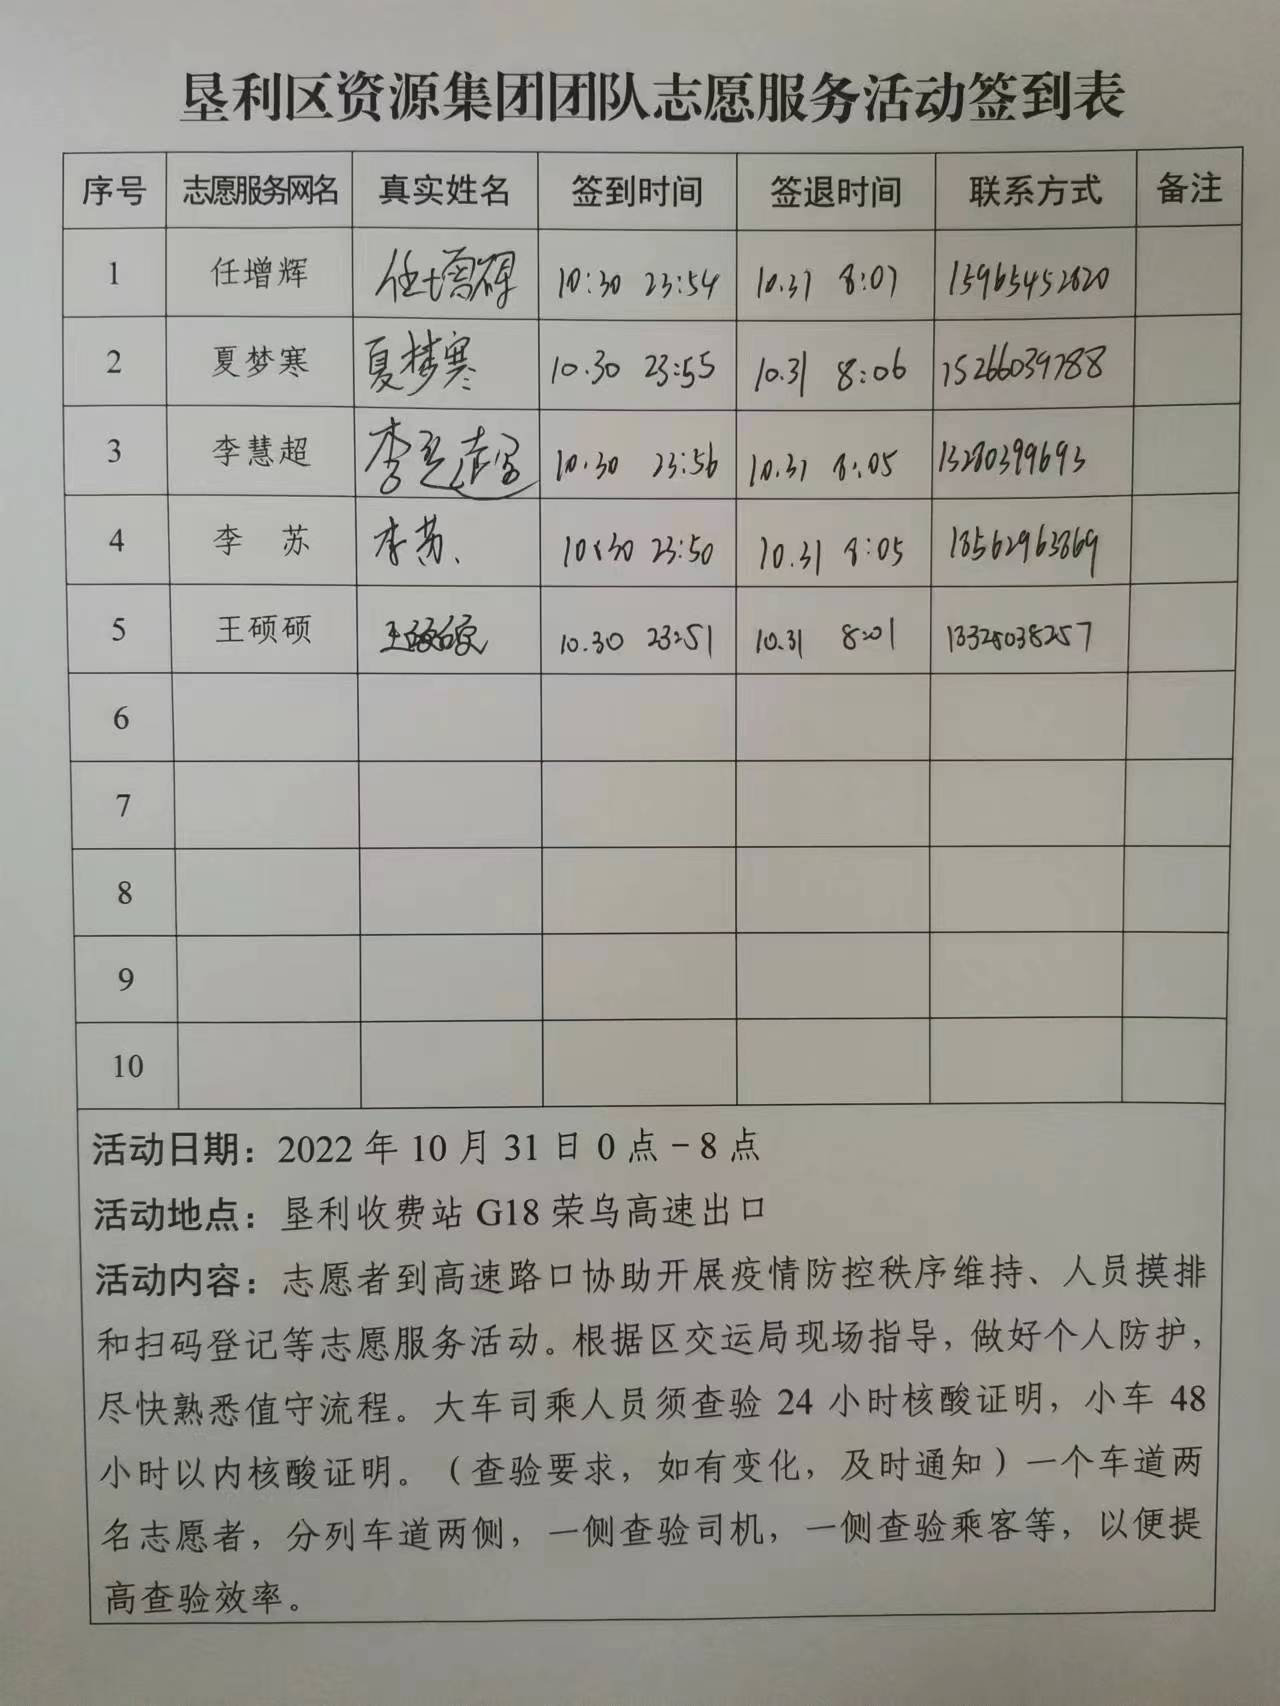 垦利区资源集团团队志愿服务活动签到表
序号 志愿服务网名 真实姓名 签到时间 签退时间 联系方式 备注
1 任增辉 任增辉 10:30 23:54 10.31 8:07 15965452820
2 夏梦寒 夏梦寒 10.30 23:55 10.31 8:06 15266039788
3 李慧超 10.30 23:56 10.31 8:05 13280399693
4 李 苏 李苏 10.30 23:50 10.31 8:05 18562963869
5 王硕硕 王硕硕 10.30 23:51 10.31 8:01 13325038257
6
7
8
9
10
活动日期：2022年10月31日0点-8点
活动地点：垦利收费站G18荣乌高速出口
活动内容：志愿者到高速路口协助开展疫情防控秩序维持、人员摸排
和扫码登记等志愿服务活动。根据区交运局现场指导，做好个人防护，
尽快熟悉值守流程。大车司乘人员须查验24小时核酸证明，小车48
小时以内核酸证明。（查验要求，如有变化，及时通知）一个车道两
名志愿者，分列车道两侧，一侧查验司机，一侧查验乘客等，以便提
高查验效率。